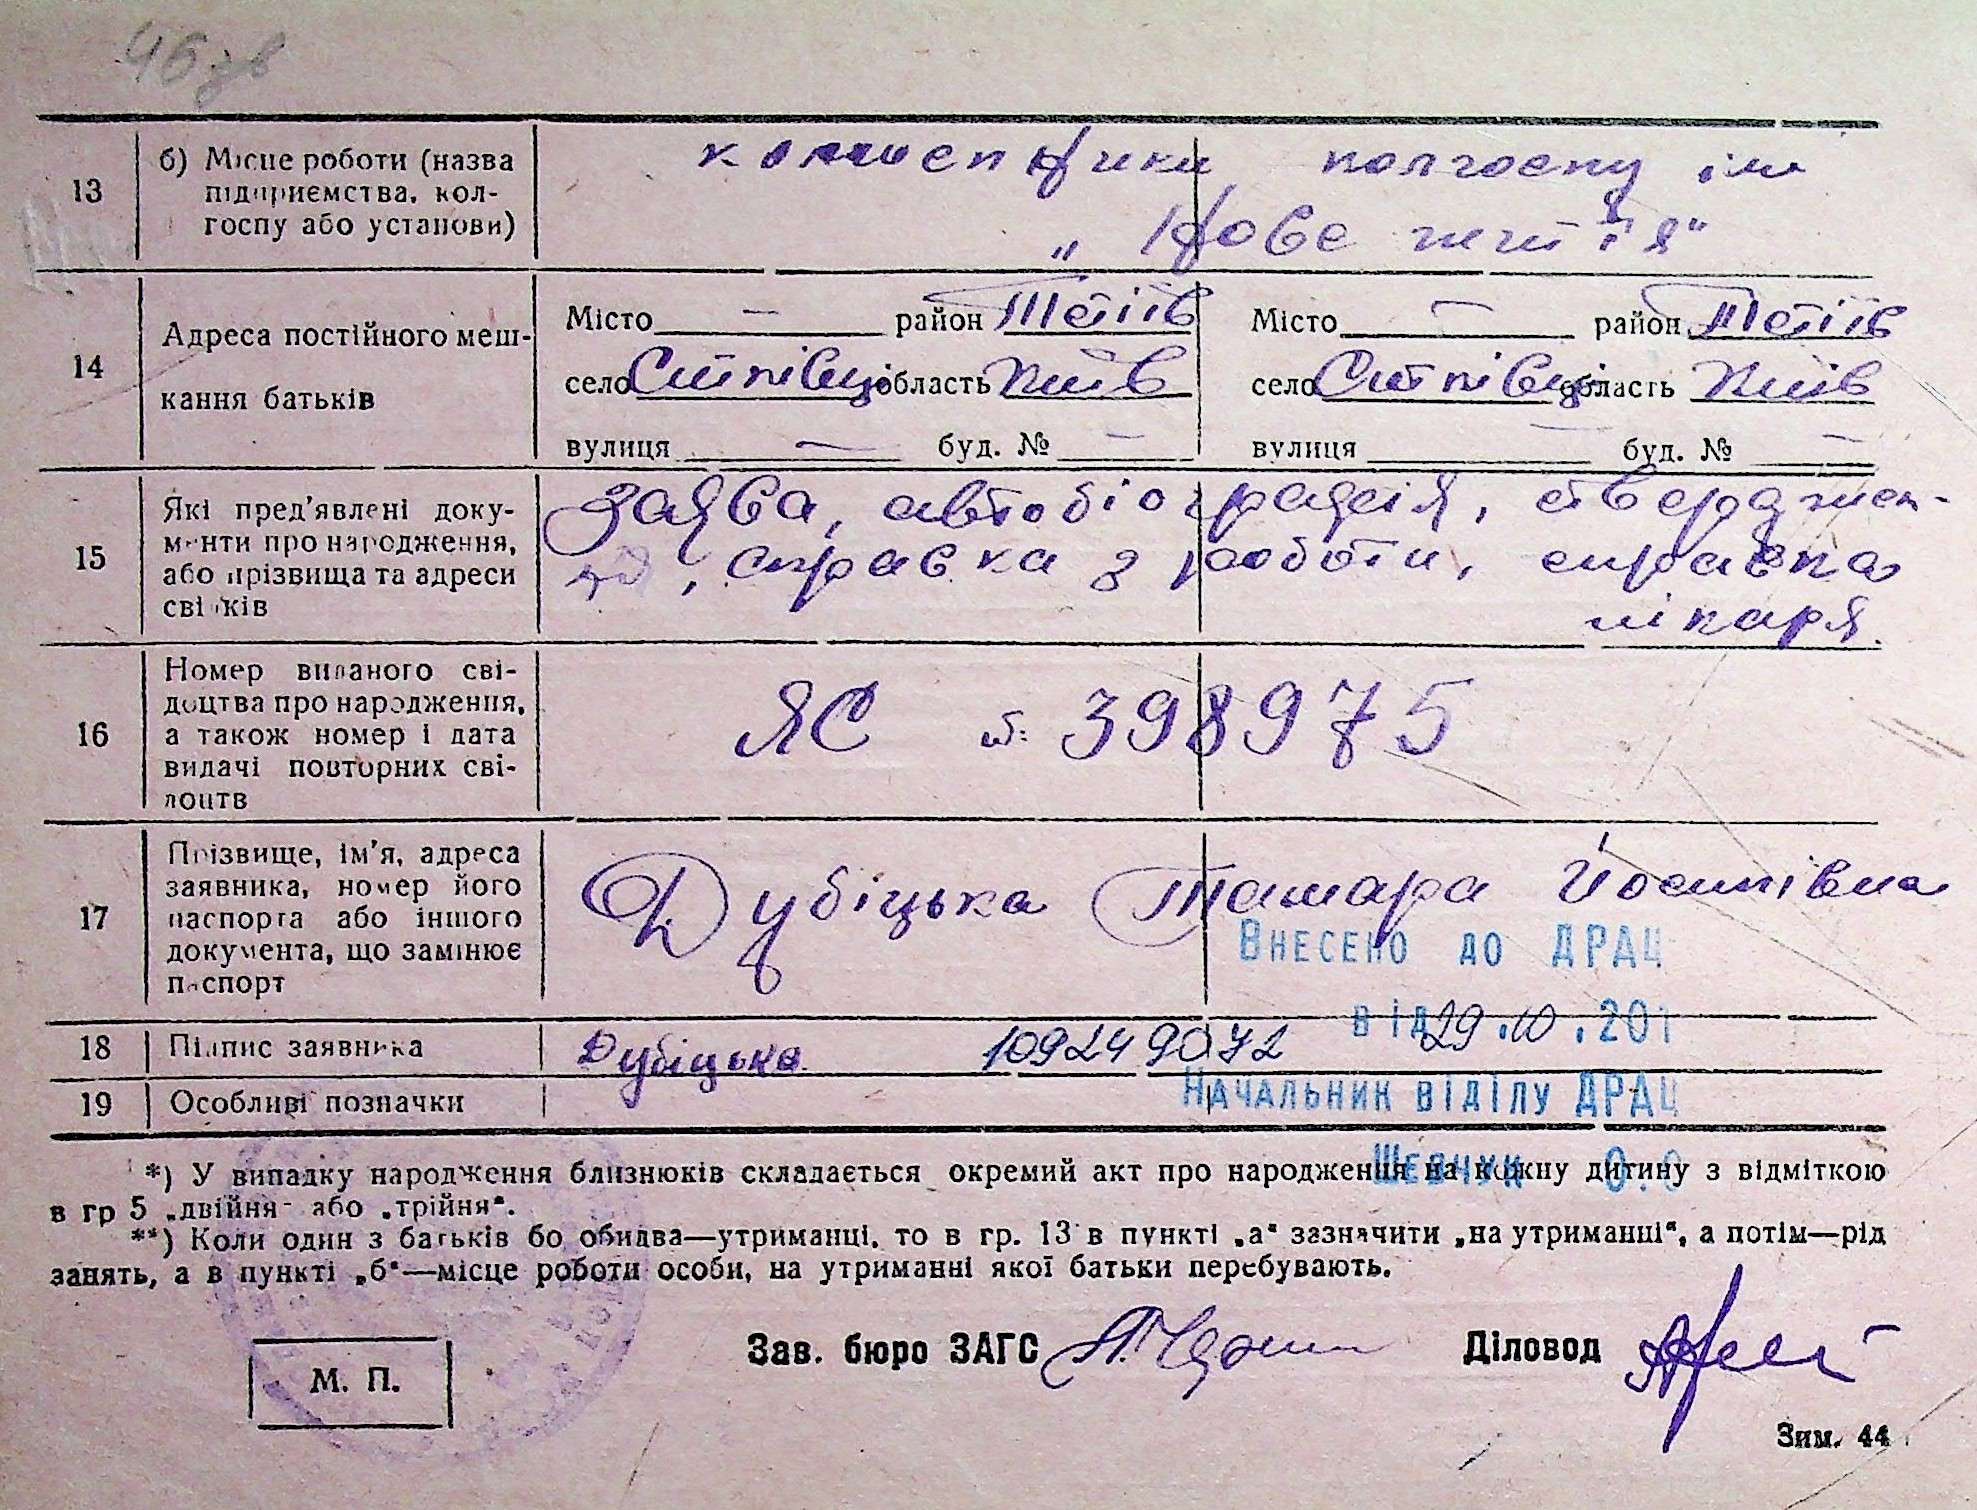 46 зв
13
б) Місце роботи (назва підприємства, кол-
госпу або установи)
колгоспу ім
„Нове життя"
14
Адреса постійного меш-
кання батьків
Місто — район Тетіїв Місто — район Тетіїв
село область Київ село область Київ
вулиця — буд. № — вулиця — буд. № —
15
Які пред'явлені доку-
менти про народження,
або прізвища та адреси
свідків
заява, автобіографія, стверджен-
ня, справка з роботи, справка
лікаря.
16
Номер виданого сві-
доцтва про народження,
а також номер і дата
видачі повторних сві-
доцтв
ЯС № 398975
17
Прізвище, ім'я, адреса
заявника, номер його
паспорта або іншого
документа, що замінює
паспорт
Дубіцька Тамара Йосипівна
Внесено до ДРАЦ
від 29.10.201
18 Підпис заявника Дубіцька 109249072
Начальник відділу ДРАЦ
19 Особливі позначки
Шевчук О.О
*) У випадку народження близнюків складається окремий акт про народження на кожну дитину з відміткою
в гр 5 „двійня" або „трійня".
**) Коли один з батьків бо обидва—утриманці, то в гр. 13 в пункті „а" зазначити „на утриманні", а потім—рід
занять, а в пункті „б"—місце роботи особи, на утриманні якої батьки перебувають.
Зав. бюро ЗАГС Діловод
М. П.
Зим. 44